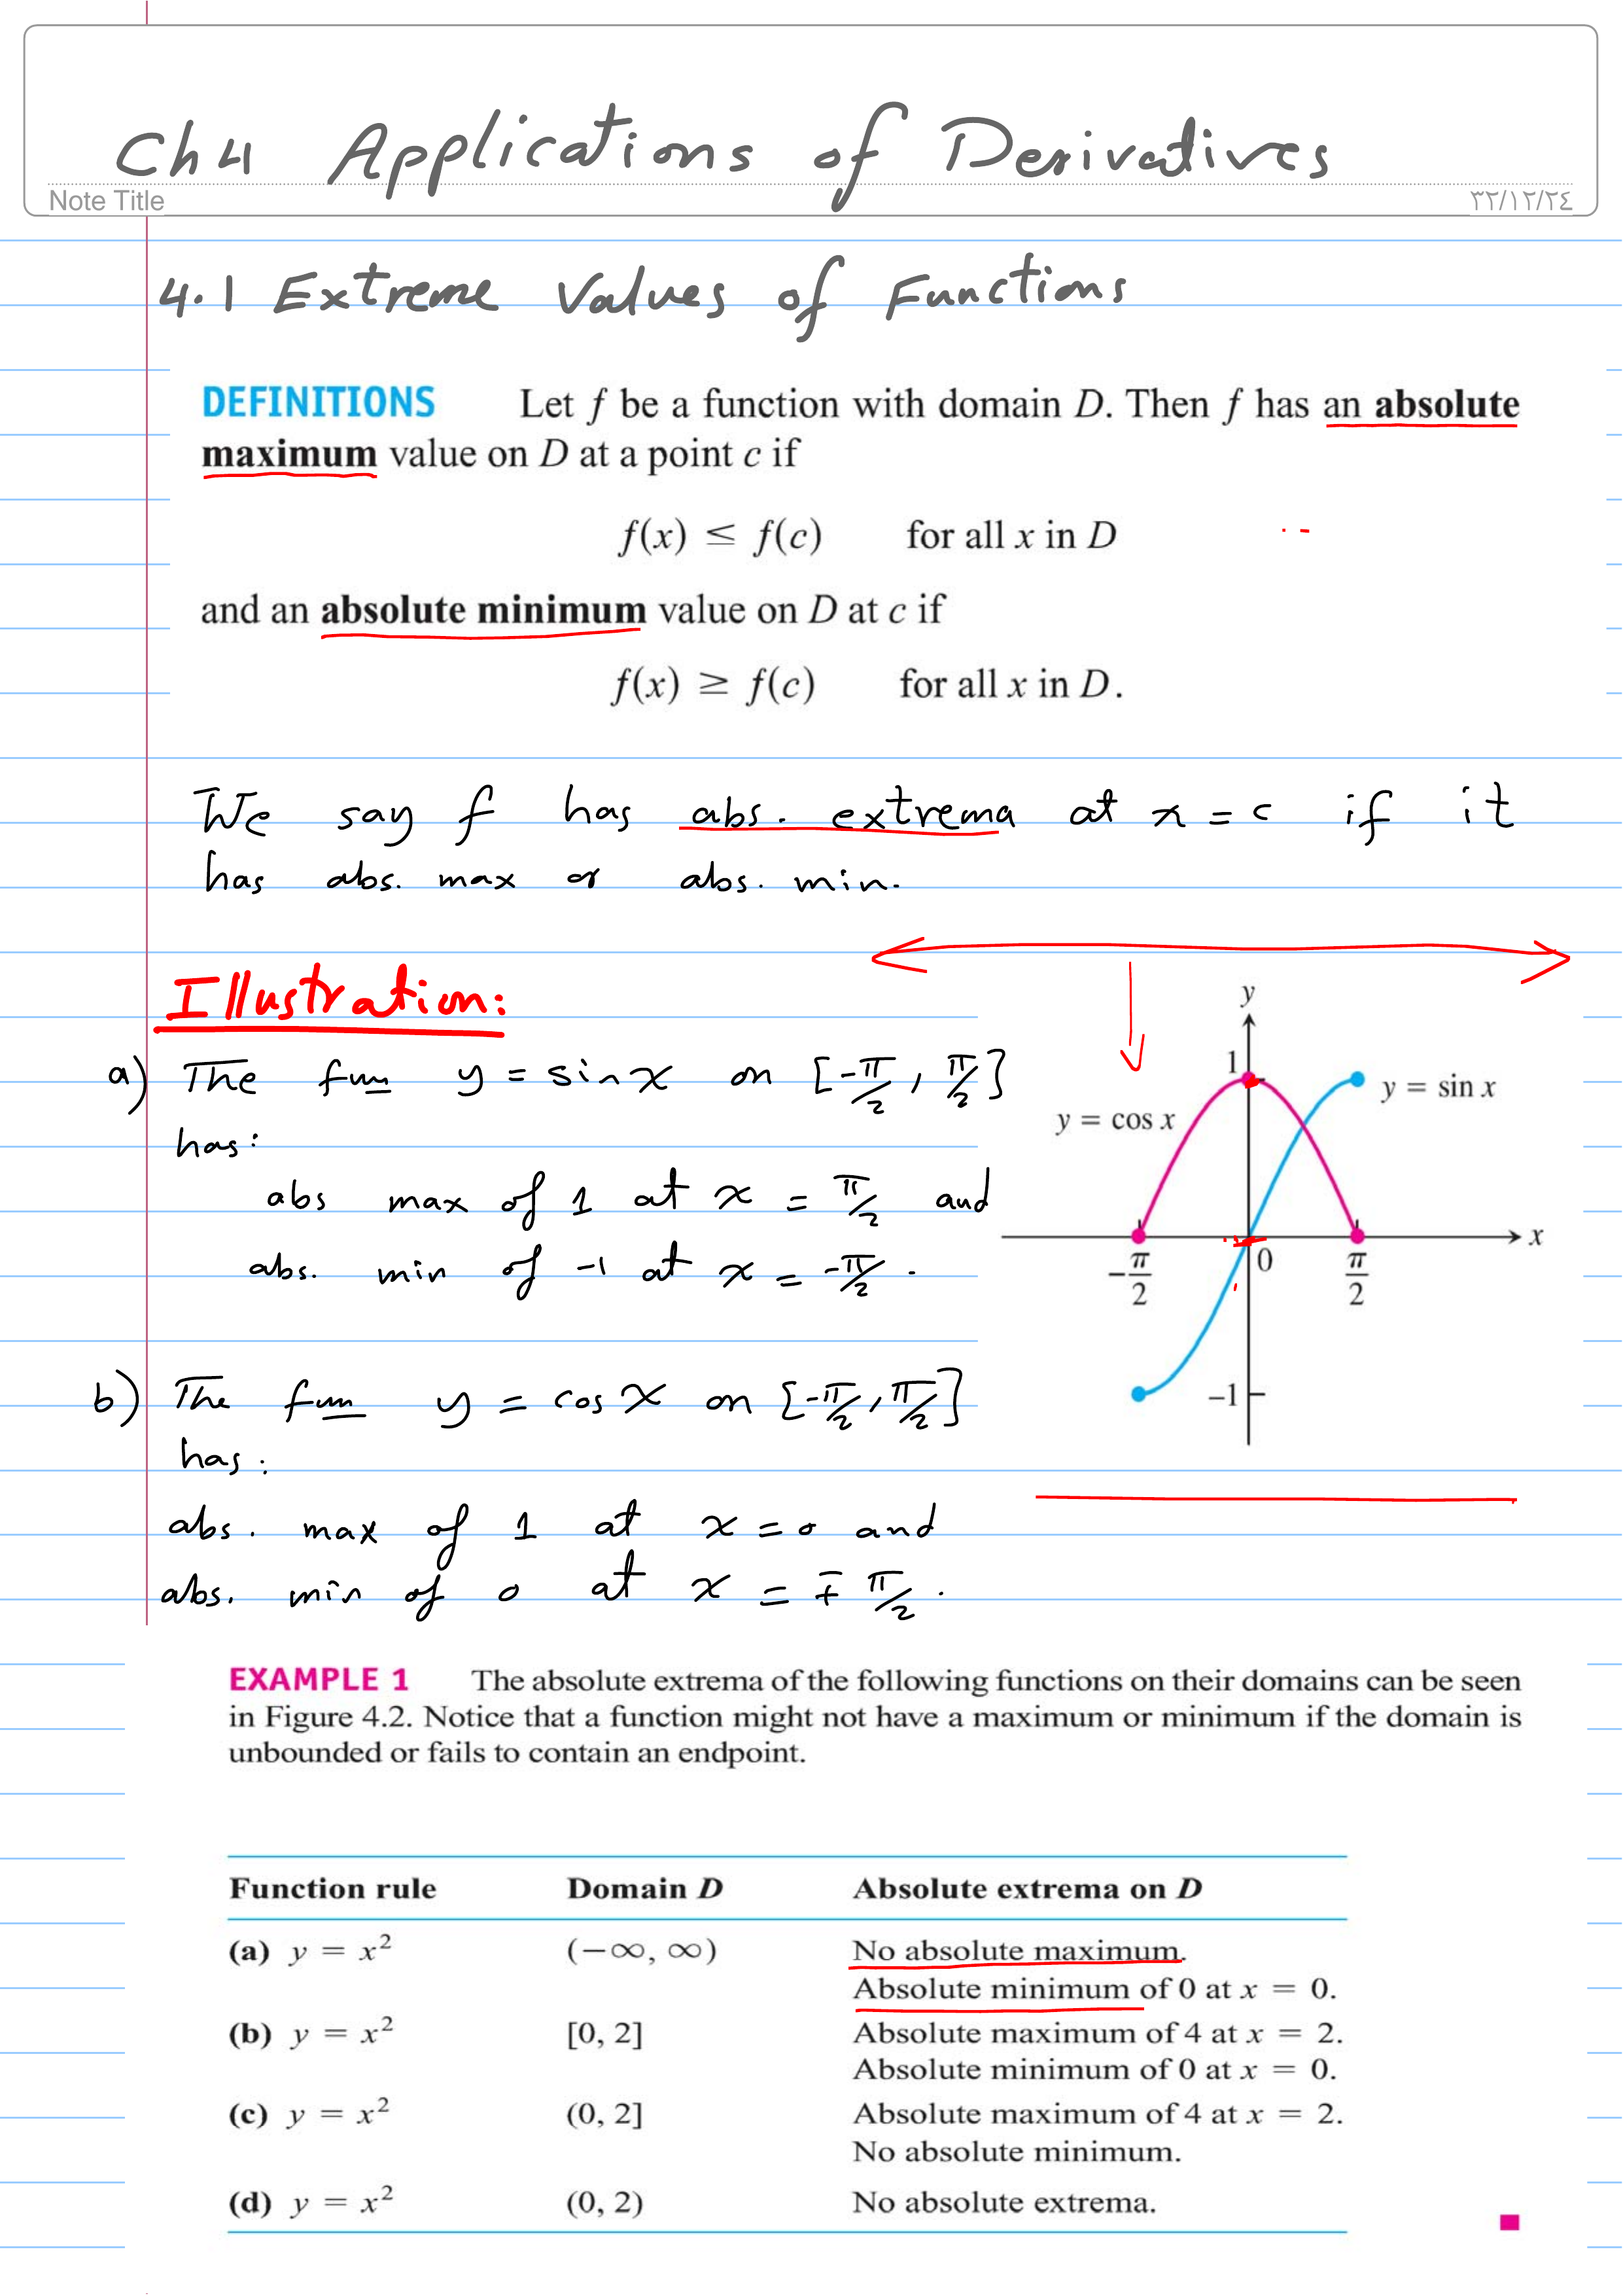 Ch 4 Applications of Derivatives
Note Title
٣٢/١٢/٢٤
4.1 Extreme Values of Functions
DEFINITIONS Let f be a function with domain D. Then f has an absolute
maximum value on D at a point c if
f(x) ≤ f(c) for all x in D
and an absolute minimum value on D at c if
f(x) ≥ f(c) for all x in D.
We say f has abs. extrema at x = c if it
has abs. max or abs. min.
Illustration:
a) The fun y = sin x on [-π/2, π/2]
has:
abs max of 1 at x = π/2 and
abs. min of -1 at x = -π/2.
y
1
y = cos x
y = sin x
x
-π/2
0
π/2
-1
b) The fun y = cos x on [-π/2, π/2]
has:
abs. max of 1 at x = 0 and
abs. min of 0 at x = ∓ π/2.
EXAMPLE 1 The absolute extrema of the following functions on their domains can be seen
in Figure 4.2. Notice that a function might not have a maximum or minimum if the domain is
unbounded or fails to contain an endpoint.
Function rule Domain D Absolute extrema on D
(a) y = x² (−∞, ∞) No absolute maximum.
Absolute minimum of 0 at x = 0.
(b) y = x² [0, 2] Absolute maximum of 4 at x = 2.
Absolute minimum of 0 at x = 0.
(c) y = x² (0, 2] Absolute maximum of 4 at x = 2.
No absolute minimum.
(d) y = x² (0, 2) No absolute extrema.